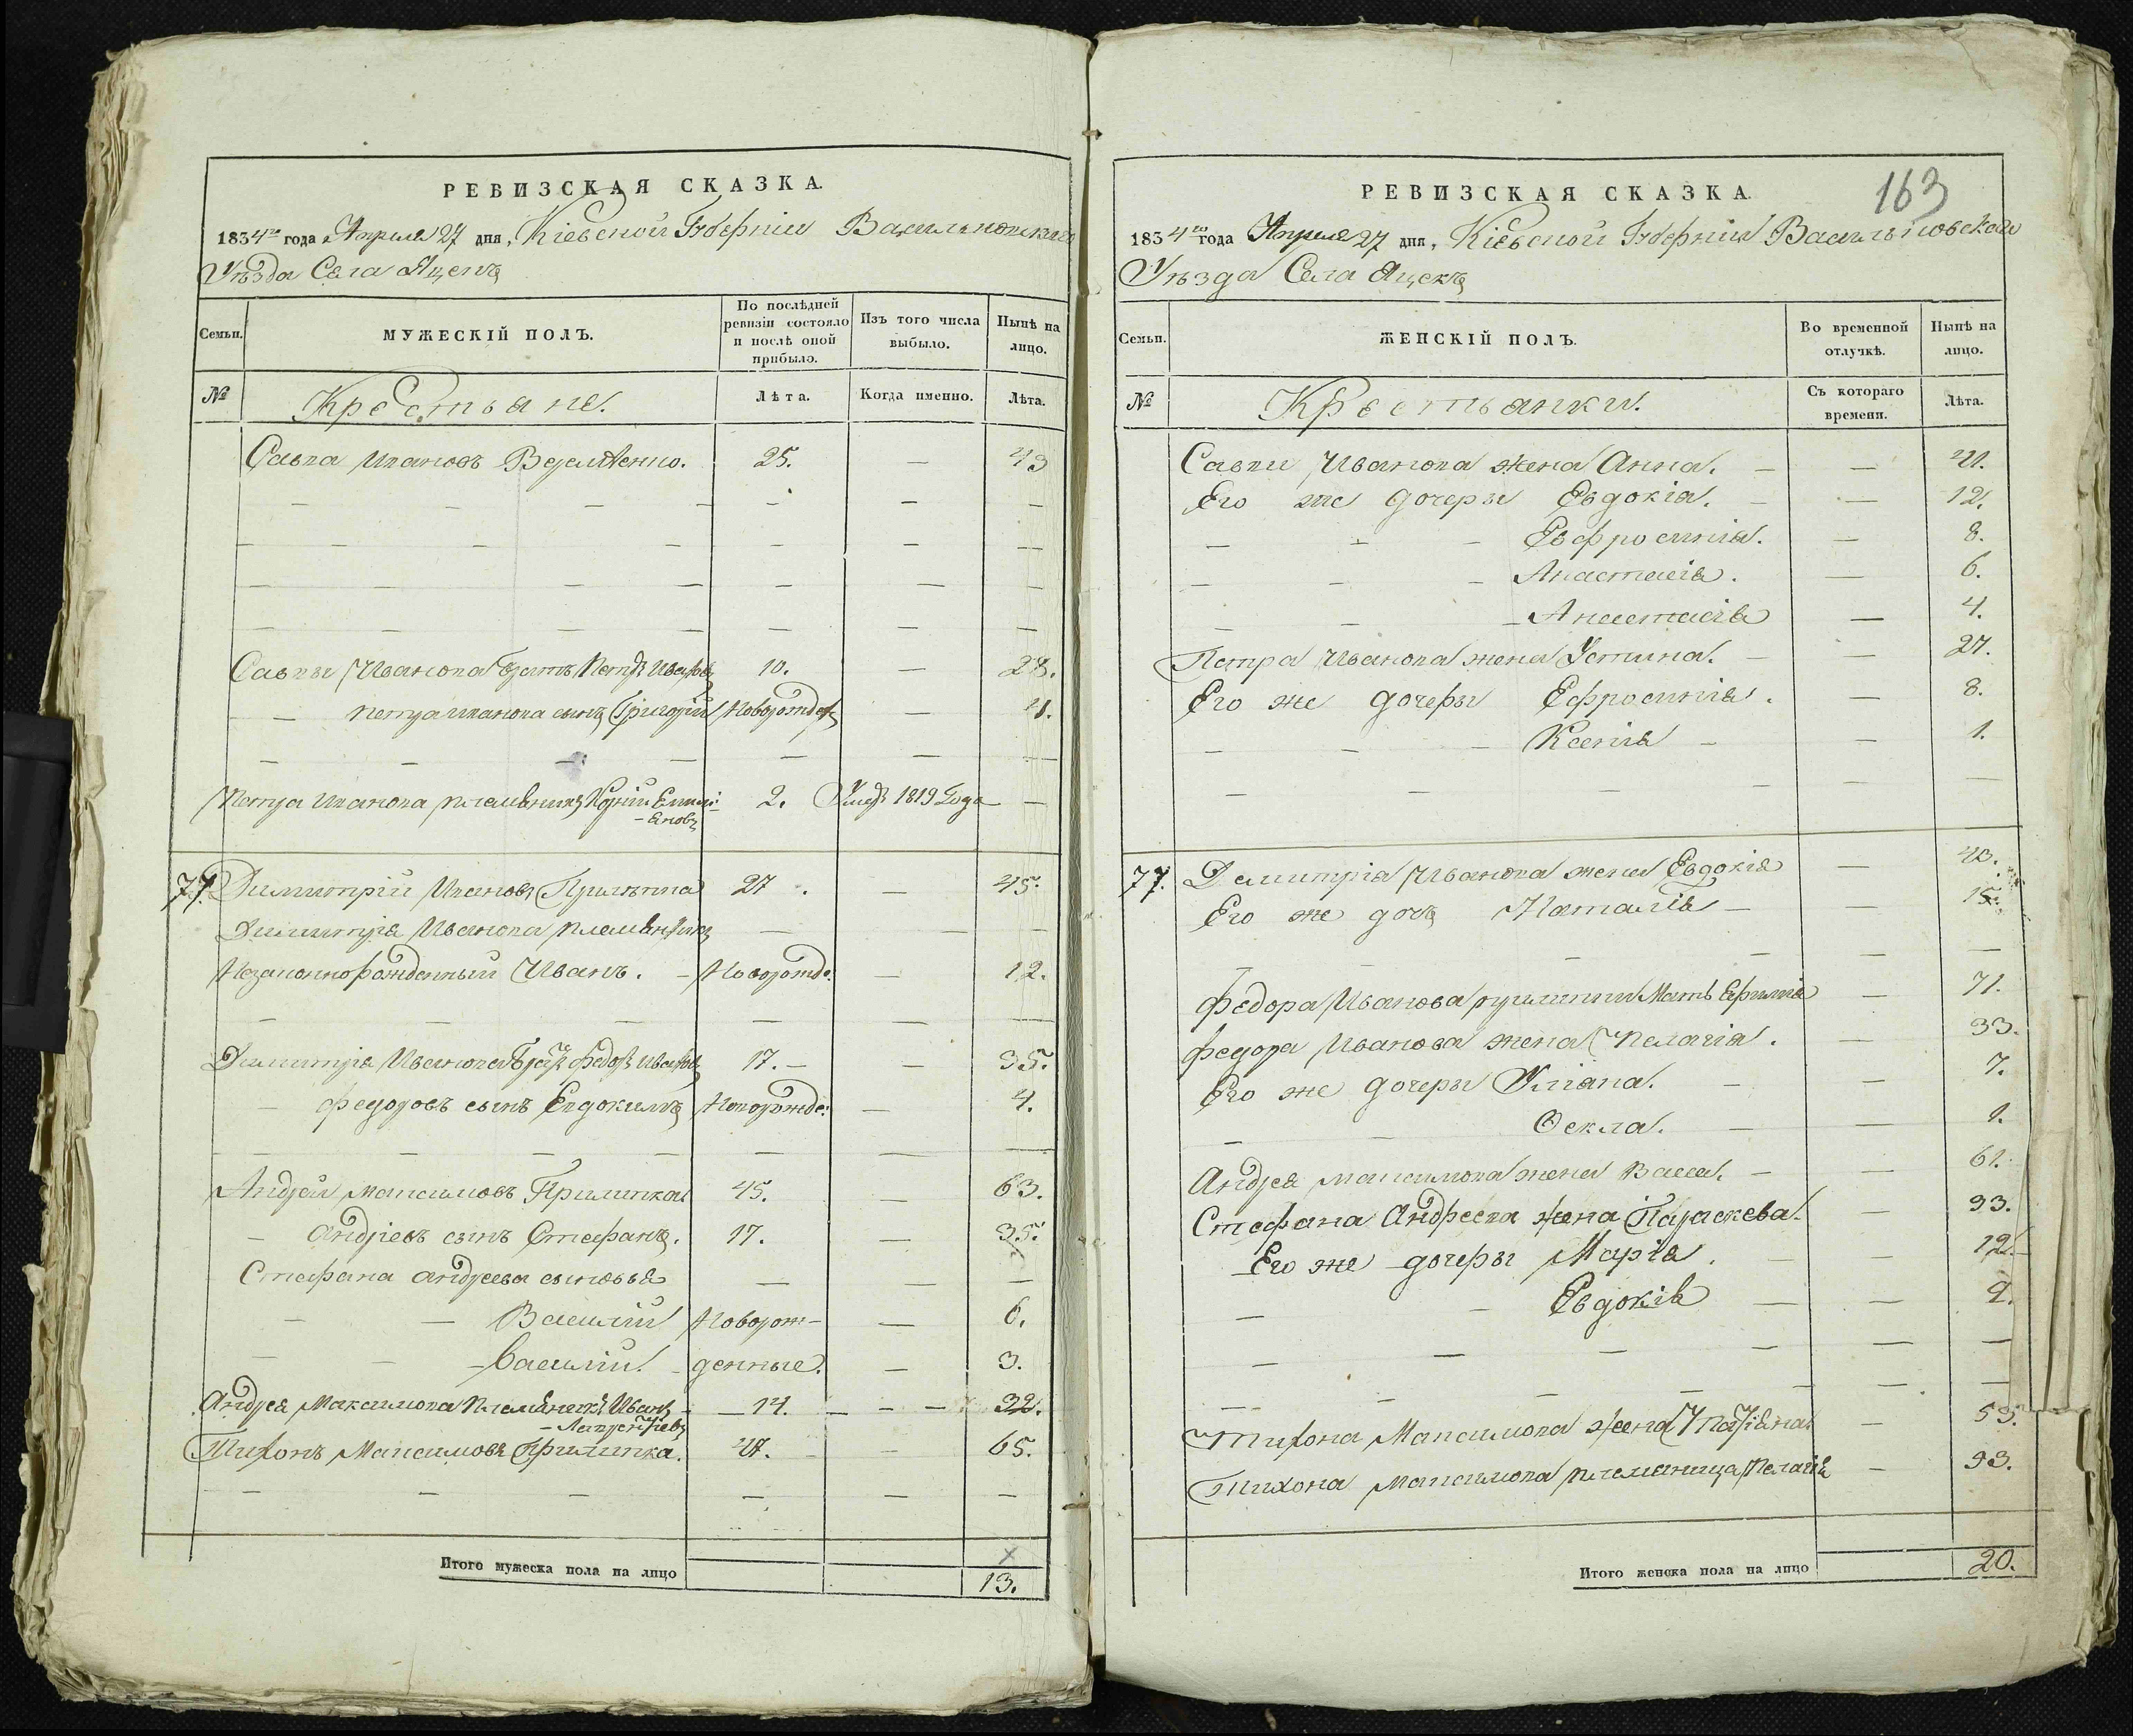 РЕВИЗСКАЯ СКАЗКА.
1834го года Апреля 27 дня, Кіевской Губерніи Васильковскаго
Уѣзда Села Яцекъ
Семьи. МУЖЕСКІЙ ПОЛЪ. По послѣдней ревизіи состояло и послѣ оной прибыло. Изъ того числа выбыло. Нынѣ на лицо.
№ Крестьяне. Лѣта. Когда именно. Лѣта.
Савка Ивановъ 25. — 43
— — — — — — —
— — — — — — —
— — — — — — —
— — — — — — —
Савки Иванова братъ Петръ Ивановъ 10. — 28.
— — Петра Иванова сынъ Григорій Новорожден —
— — — — — —
Петра Иванова племѣнникъ Корній Емилі- 2. Умеръ 1819 Года —
-яновъ
77. Димитрій Ивановъ Прилипка 27. — 45.
Димитрія Иванова племѣнникъ — — —
Незаконнорожденный Иванъ. — Новорожде: — 12.
— — — — — —
Димитрія Иванова братъ Федоръ Ивановъ 17. — — 35.
— Федоровъ сынъ Евдокимъ Новорожде: — 4.
— — — — — — —
Андрей Максимовъ Прилипка 45. — 63.
— Андріевъ сынъ Стефанъ. 17. — 35.
Стефана Андреева сыновья — — —
— — Василій Новорож- — 6.
— — — Василій. денные. — 3.
Андрея Максимова Племѣникъ Иванъ — 14. — — — 32.
Тихонъ Максимовъ Прилипка. 47. — 65.
— — — — — — —
Итого мужеска пола на лицо 13.
163
РЕВИЗСКАЯ СКАЗКА.
1834го года Апреля 27 дня, Кіевской Губерніи Васильковской
Уѣзда Села Яцекъ
Семьи. ЖЕНСКІЙ ПОЛЪ. Во временной отлучкѣ. Нынѣ на лицо.
№ Крестьянки. Съ котораго времени. Лѣта.
Савки Иванова жена Анна. — — 41.
Его же дочеры Евдокія. — — 12.
— — — Евфросинія. — 8.
— — — Анастасія. — 6.
— — — Анастасія — 4.
Петра Иванова жена Устина. — — 27.
Его же дочеры Ефросинія. — 8.
— — — Ксенія — — 1.
— — — — — —
77. Димитрія Иванова жена Евдокія — 43.
Его же дочь Наталія — — 15.
— — — — — —
Федора Иванова Прилипки Мать Ефимія — 71.
Федора Иванова жена Пелагія. — 33.
Его же дочеры Уліана. — — 7.
— — Ѳекла. — — 1.
Андрея Максимова жена Васса. — — 61.
Стефана Андреева жена Параскева. — 33.
Его же дочеры Марія. — — 12.
— — Евдокія — — 2.
— — — — — —
— — — — — —
Тихона Максимова жена Татіана — 53.
Тихона Максимова племѣница Пелагія — 33.
Итого женска пола на лицо 20.